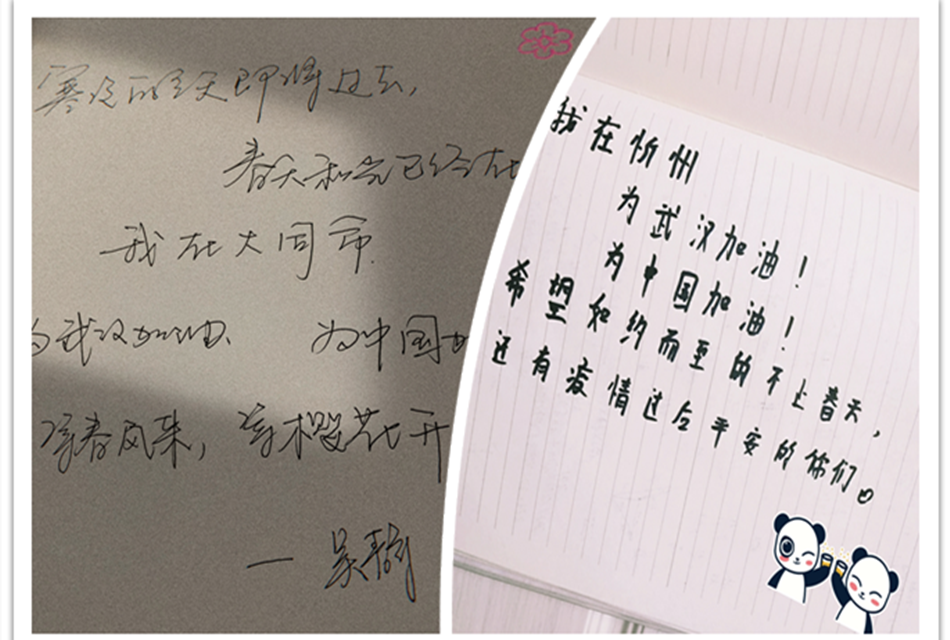 寒冷的冬天即将过去,
春天和已经在
我在大同市
为武汉加油、 为中国加
等春风来,等樱花开
— 吴
我在忻州
为武汉加油!
为中国加油!
希望如约而至的不止春天,
还有疫情过后平安的你们。